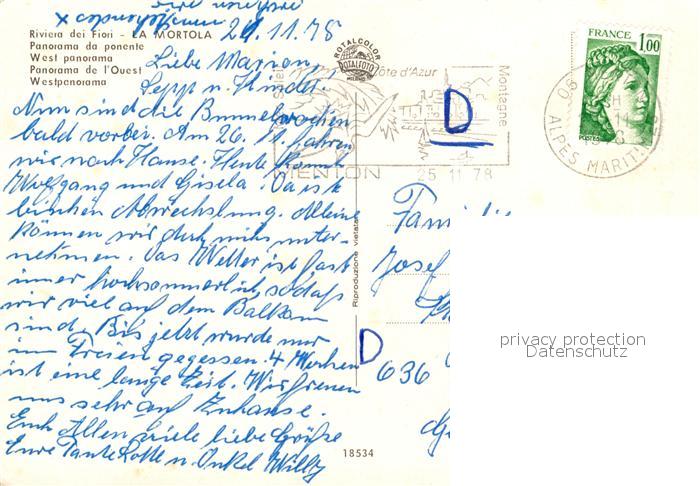 24.11.78
Riviera dei Fiori - LA MORTOLA
Panorama da ponente
West panorama
Panorama de l'Ouest
Westpanorama
ROTALCOLOR
ROTALFOTO
MILANO
Liebe Marion,
Sepp u. Kinder!
Nun sind die Bummelwochen
bald vorbei. Am 26.11. fahren
wir nach Hause. Heute kommt
Wolfgang und Gisela. Da ist
bisschen Abwechslung. Alleine
können wir doch nichts unter-
nehmen. Das Wetter ist fast
immer hochsommerlich, sodaß
wir viel auf dem Balkon
sind. Bis jetzt wurde nur
im Freien gegessen. 4 Wochen
ist eine lange Zeit. Wir freuen
uns sehr auf Zuhause.
Euch Allen viele liebe Grüße
Eure Tante Lotte u. Onkel Willy
Côte d'Azur
Montagne
MENTON
25 11 78
D
FRANCE
1,00
POSTES
06
ALPES MARITIMES
Riproduzione vietata
Josef
D
636
18534
privacy protection
Datenschutz